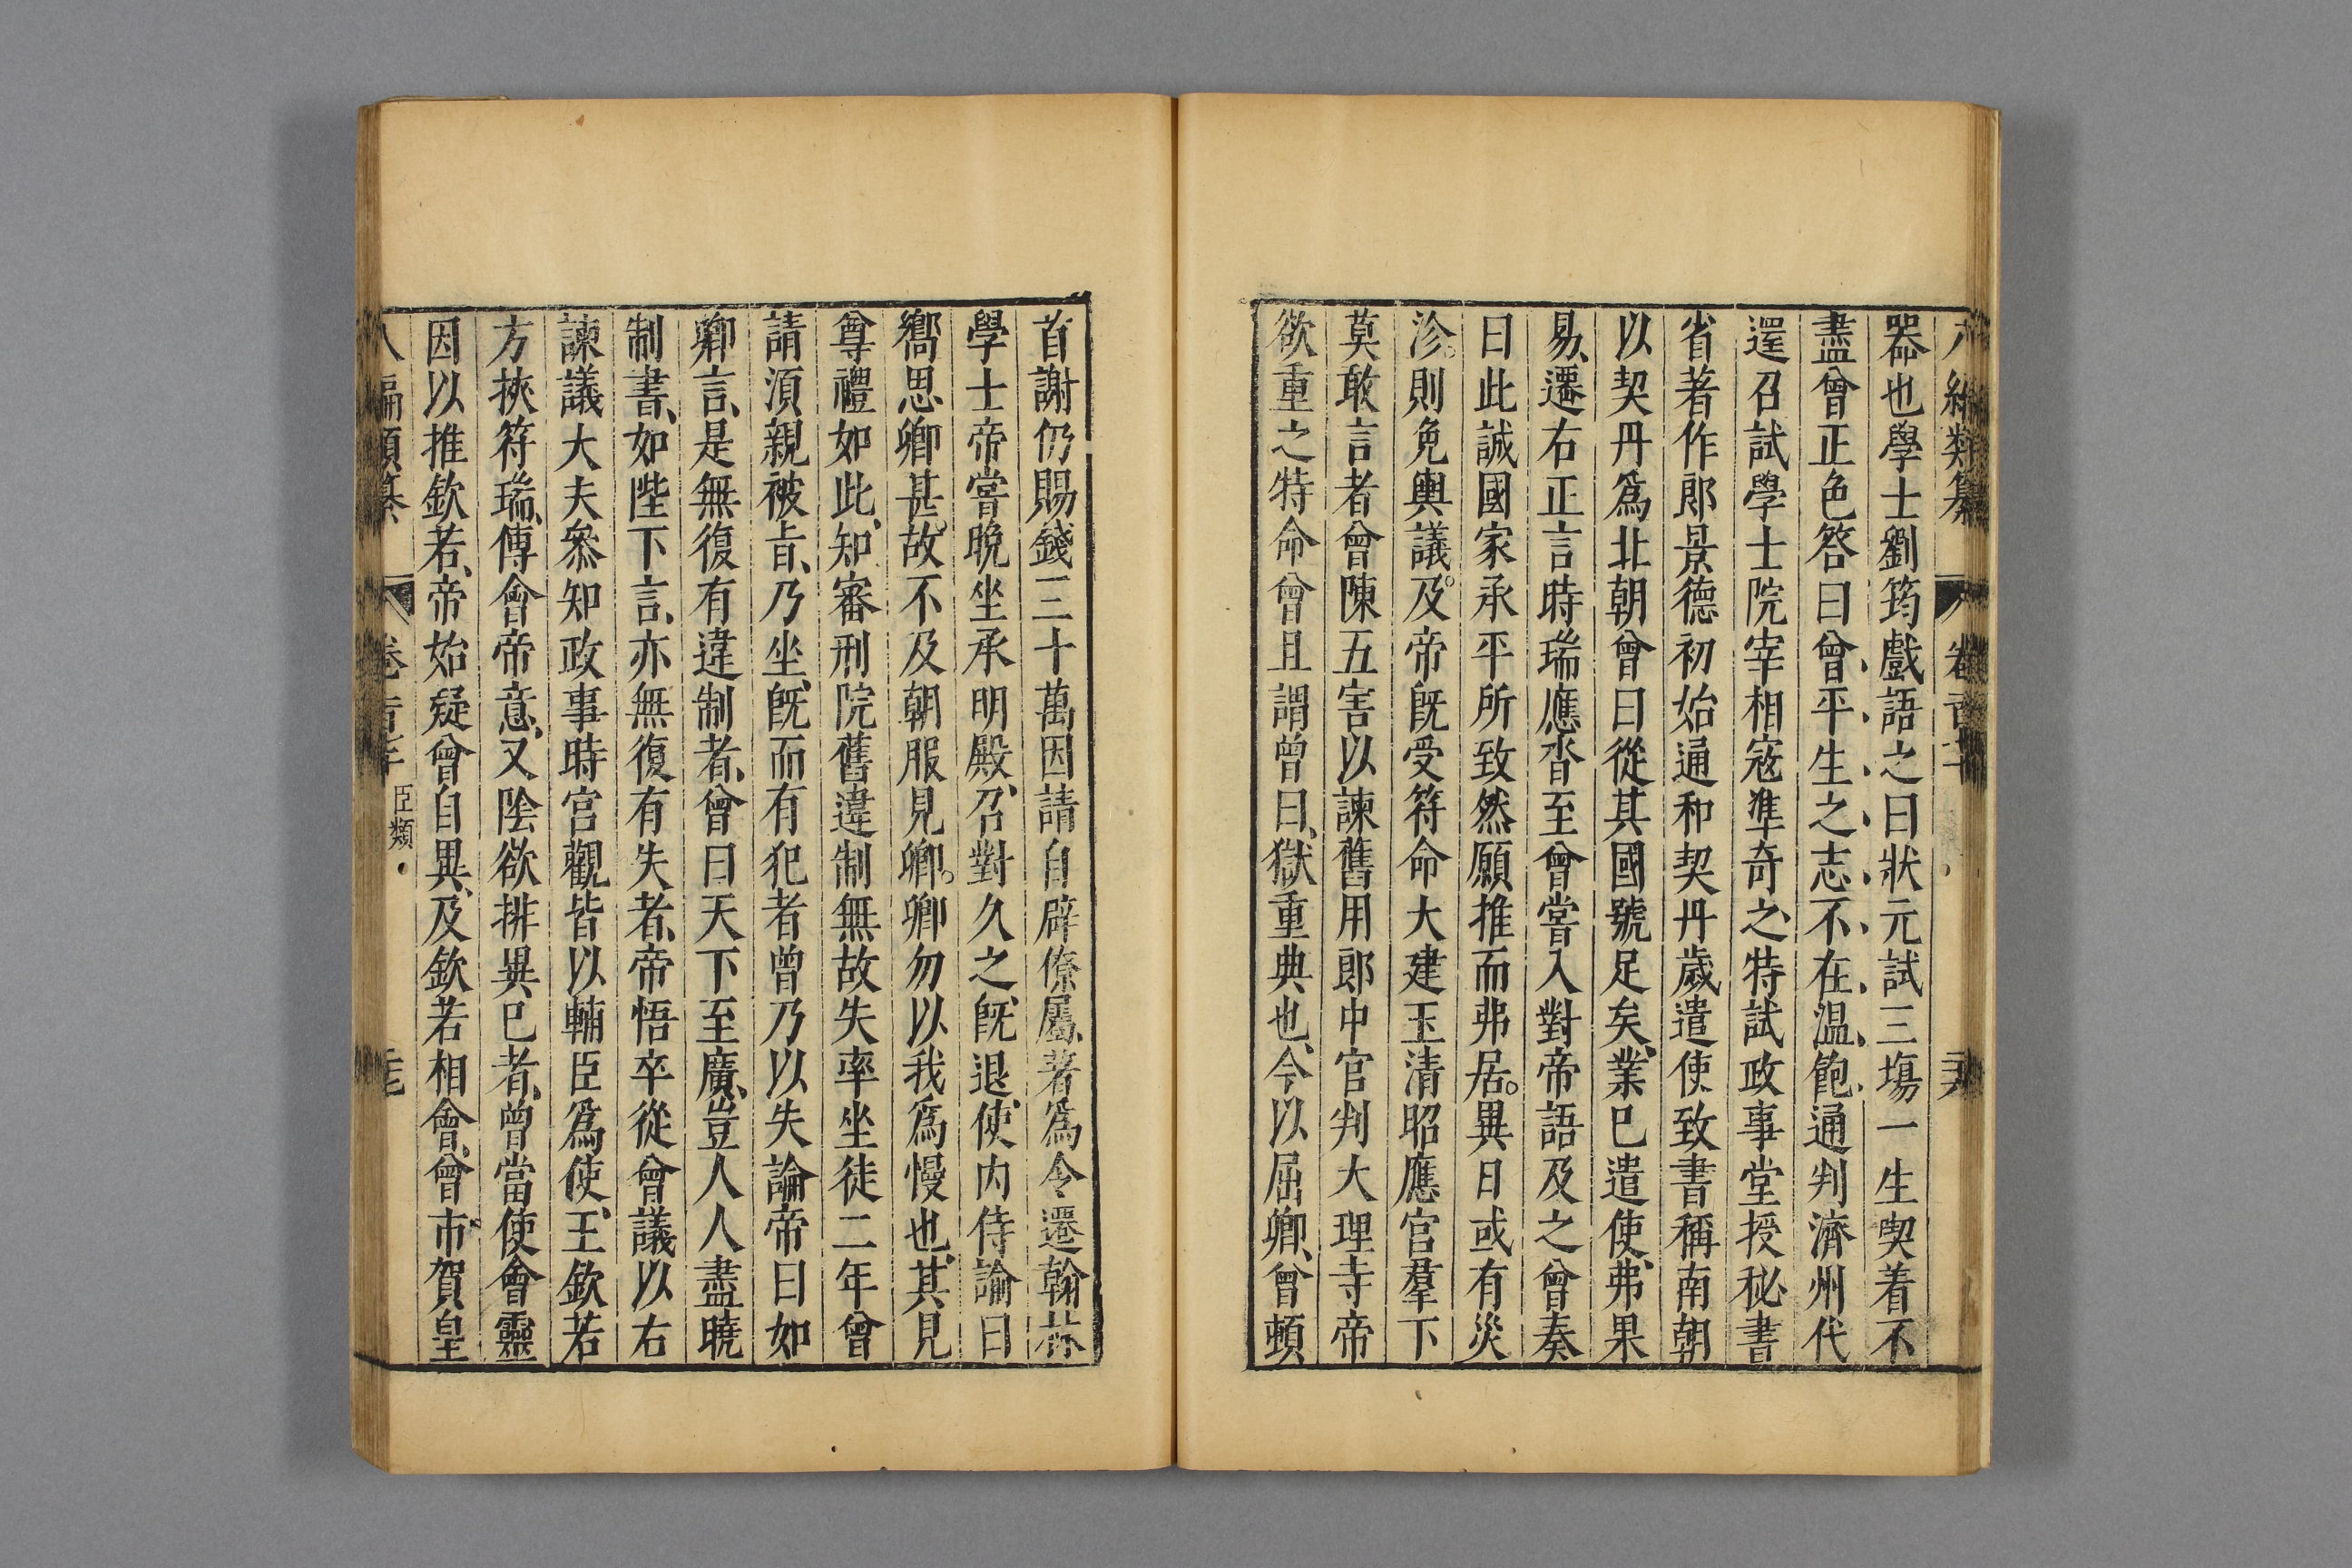 器也學士劉筠戲語之曰狀元試三塲一生喫着不
盡曾正色答曰曾平生之志不在温飽通判濟州代
還召試學士院宰相寇準奇之特試政事堂授秘書
省著作郎景德初始通和契丹歲遣使致書稱南朝
以契丹爲北朝曾曰從其國號足矣業巳遣使弗果
易遷右正言時瑞應沓至曾嘗入對帝語及之曾奏
曰此誠國家承平所致然願推而弗居異日或有災
沴則免輿議及帝旣受符命大建玉清昭應官羣下
莫敢言者曾陳五害以諫舊用郎中官判大理寺帝
欲重之特命曾且謂曾曰獄重典也今以屈卿曾頓
首謝仍賜錢三十萬因請自辟僚屬著爲令遷翰林
學士帝嘗晩坐承明殿召對久之旣退使内侍諭曰
嚮思卿甚故不及朝服見卿卿勿以我爲慢也其見
尊禮如此知審刑院舊違制無故失率坐徒二年曾
請須親被旨乃坐旣而有犯者曾乃以失論帝曰如
卿言是無復有違制者曾曰天下至廣豈人人盡曉
制書如陛下言亦無復有失者帝悟卒從曾議以右
諫議大夫叅知政事時宫觀皆以輔臣爲使王欽若
方挾符瑞傳會帝意又陰欲排異巳者曾當使會靈
因以推欽若帝始疑曾自異及欽若相會曾市賀皇
臣類